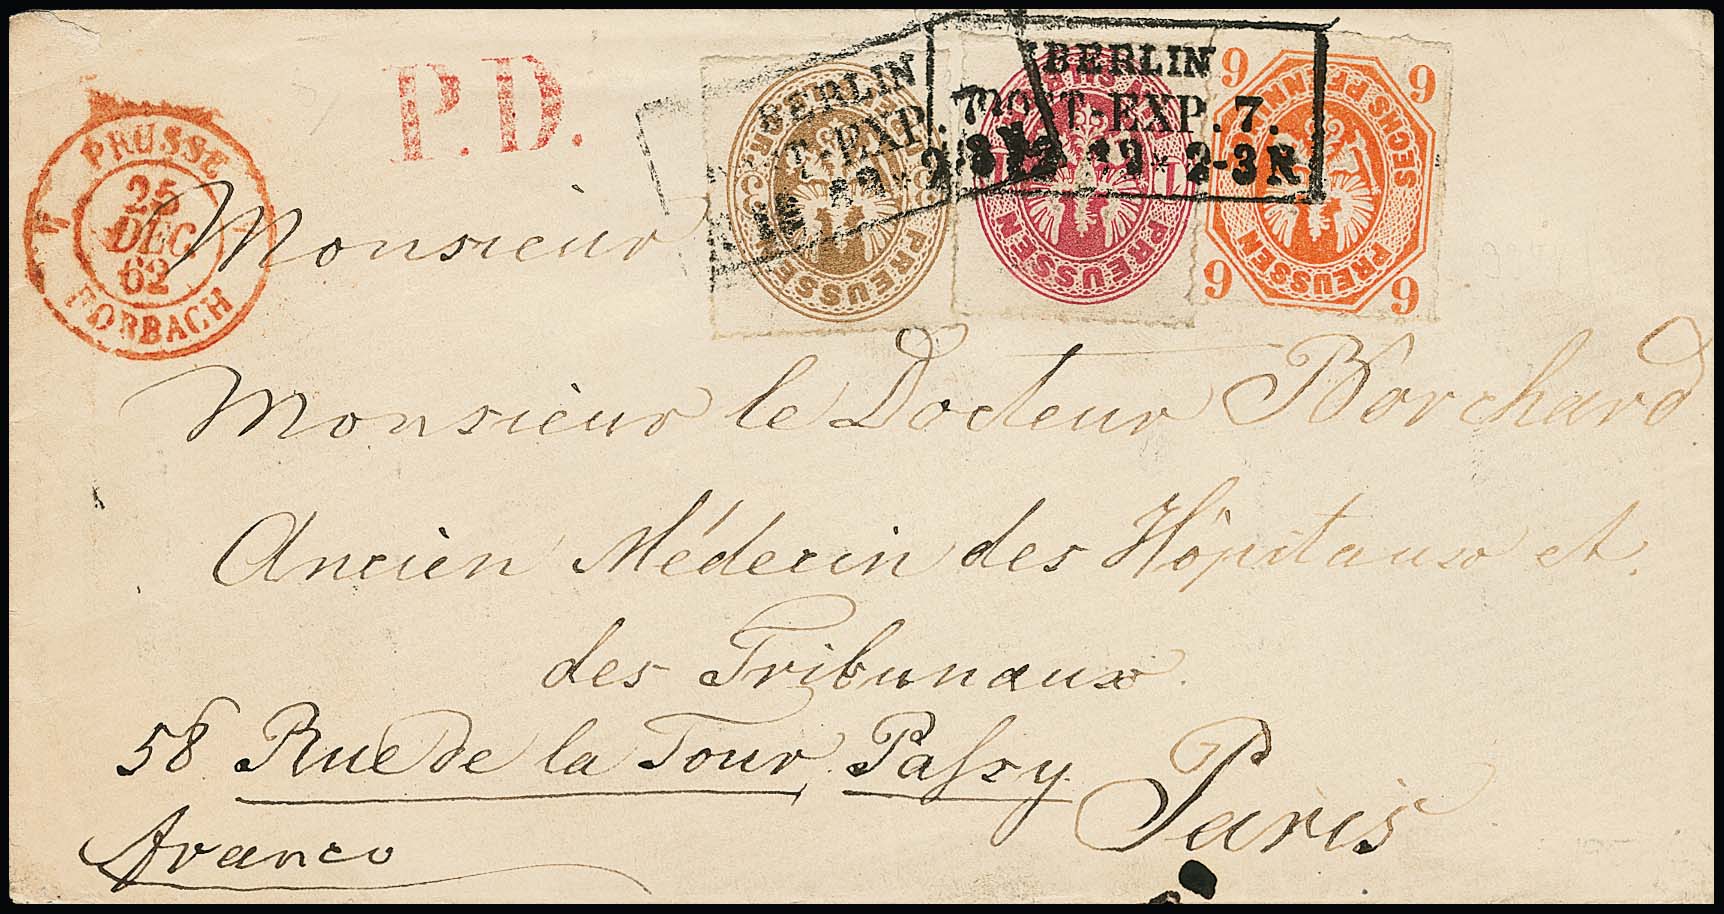 P.D.
PRUSSE
25
DEC
62
FORBACH
BERLIN
POST-EXP. 7.
2-3N
BERLIN
POST-EXP. 7.
12 2-3N
PREUSSEN
3
PREUSSEN
1
PREUSSEN
SECHS PFENNINGE
6 6
6 6
Monsieur
Monsieur le Docteur Borchard
Ancien Médecin des Hôpitaux et
des Tribunaux
58 Rue de la Tour Passy
Paris
franco